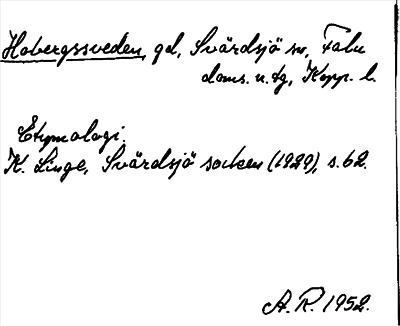 Hobergssveden, gd, Svärdsjö sn, Falu
doms. n. tg, Kopp. l.
Etymologi.
K. Linge, Svärdsjö socken (1929), s. 62.
A. R. 1952.